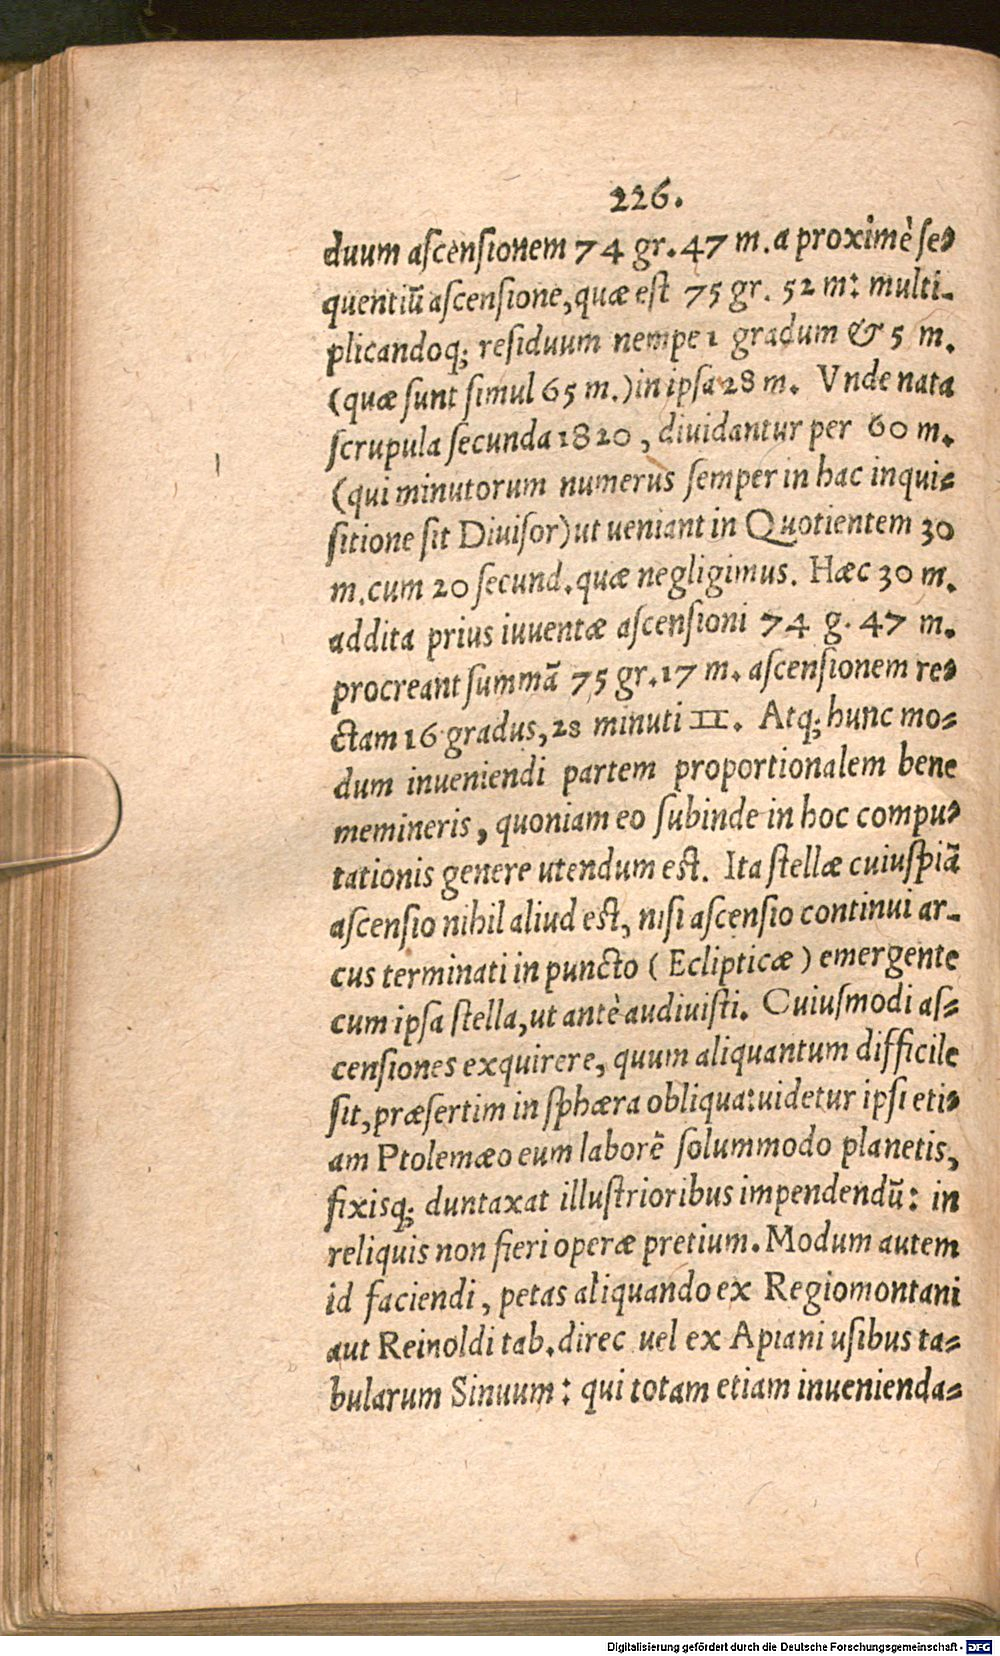 226.
duum ascensionem 74 gr. 47 m. a proximè se-
quentiũ ascensione, quæ est 75 gr. 52 m: multi-
plicandoq; residuum nempe 1 gradum & 5 m.
(quæ sunt simul 65 m.) in ipsa 28 m. Vnde nata
scrupula secunda 1820, diuidantur per 60 m.
(qui minutorum numerus semper in hac inqui-
sitione sit Diuisor) ut ueniant in Quotientem 30
m. cum 20 secund. quæ negligimus. Hæc 30 m.
addita prius iuuentæ ascensioni 74 g. 47 m.
procreant summã 75 gr. 17 m. ascensionem re-
ctam 16 gradus, 28 minuti II. Atq; hunc mo-
dum inueniendi partem proportionalem bene
memineris, quoniam eo subinde in hoc compu-
tationis genere utendum est. Ita stellæ cuiuspiã
ascensio nihil aliud est, nisi ascensio continui ar-
cus terminati in puncto (Eclipticæ) emergente
cum ipsa stella, ut antè audiuisti. Cuiusmodi as-
censiones exquirere, quum aliquantum difficile
sit, præsertim in sphæra obliqua: uidetur ipsi eti-
am Ptolemæo eum laborẽ solummodo planetis,
fixisq; duntaxat illustrioribus impendendũ: in
reliquis non fieri operæ pretium. Modum autem
id faciendi, petas aliquando ex Regiomontani
aut Reinoldi tab. direc uel ex Apiani usibus ta-
bularum Sinuum: qui totam etiam inuenienda-
Digitalisierung gefördert durch die Deutsche Forschungsgemeinschaft - DFG